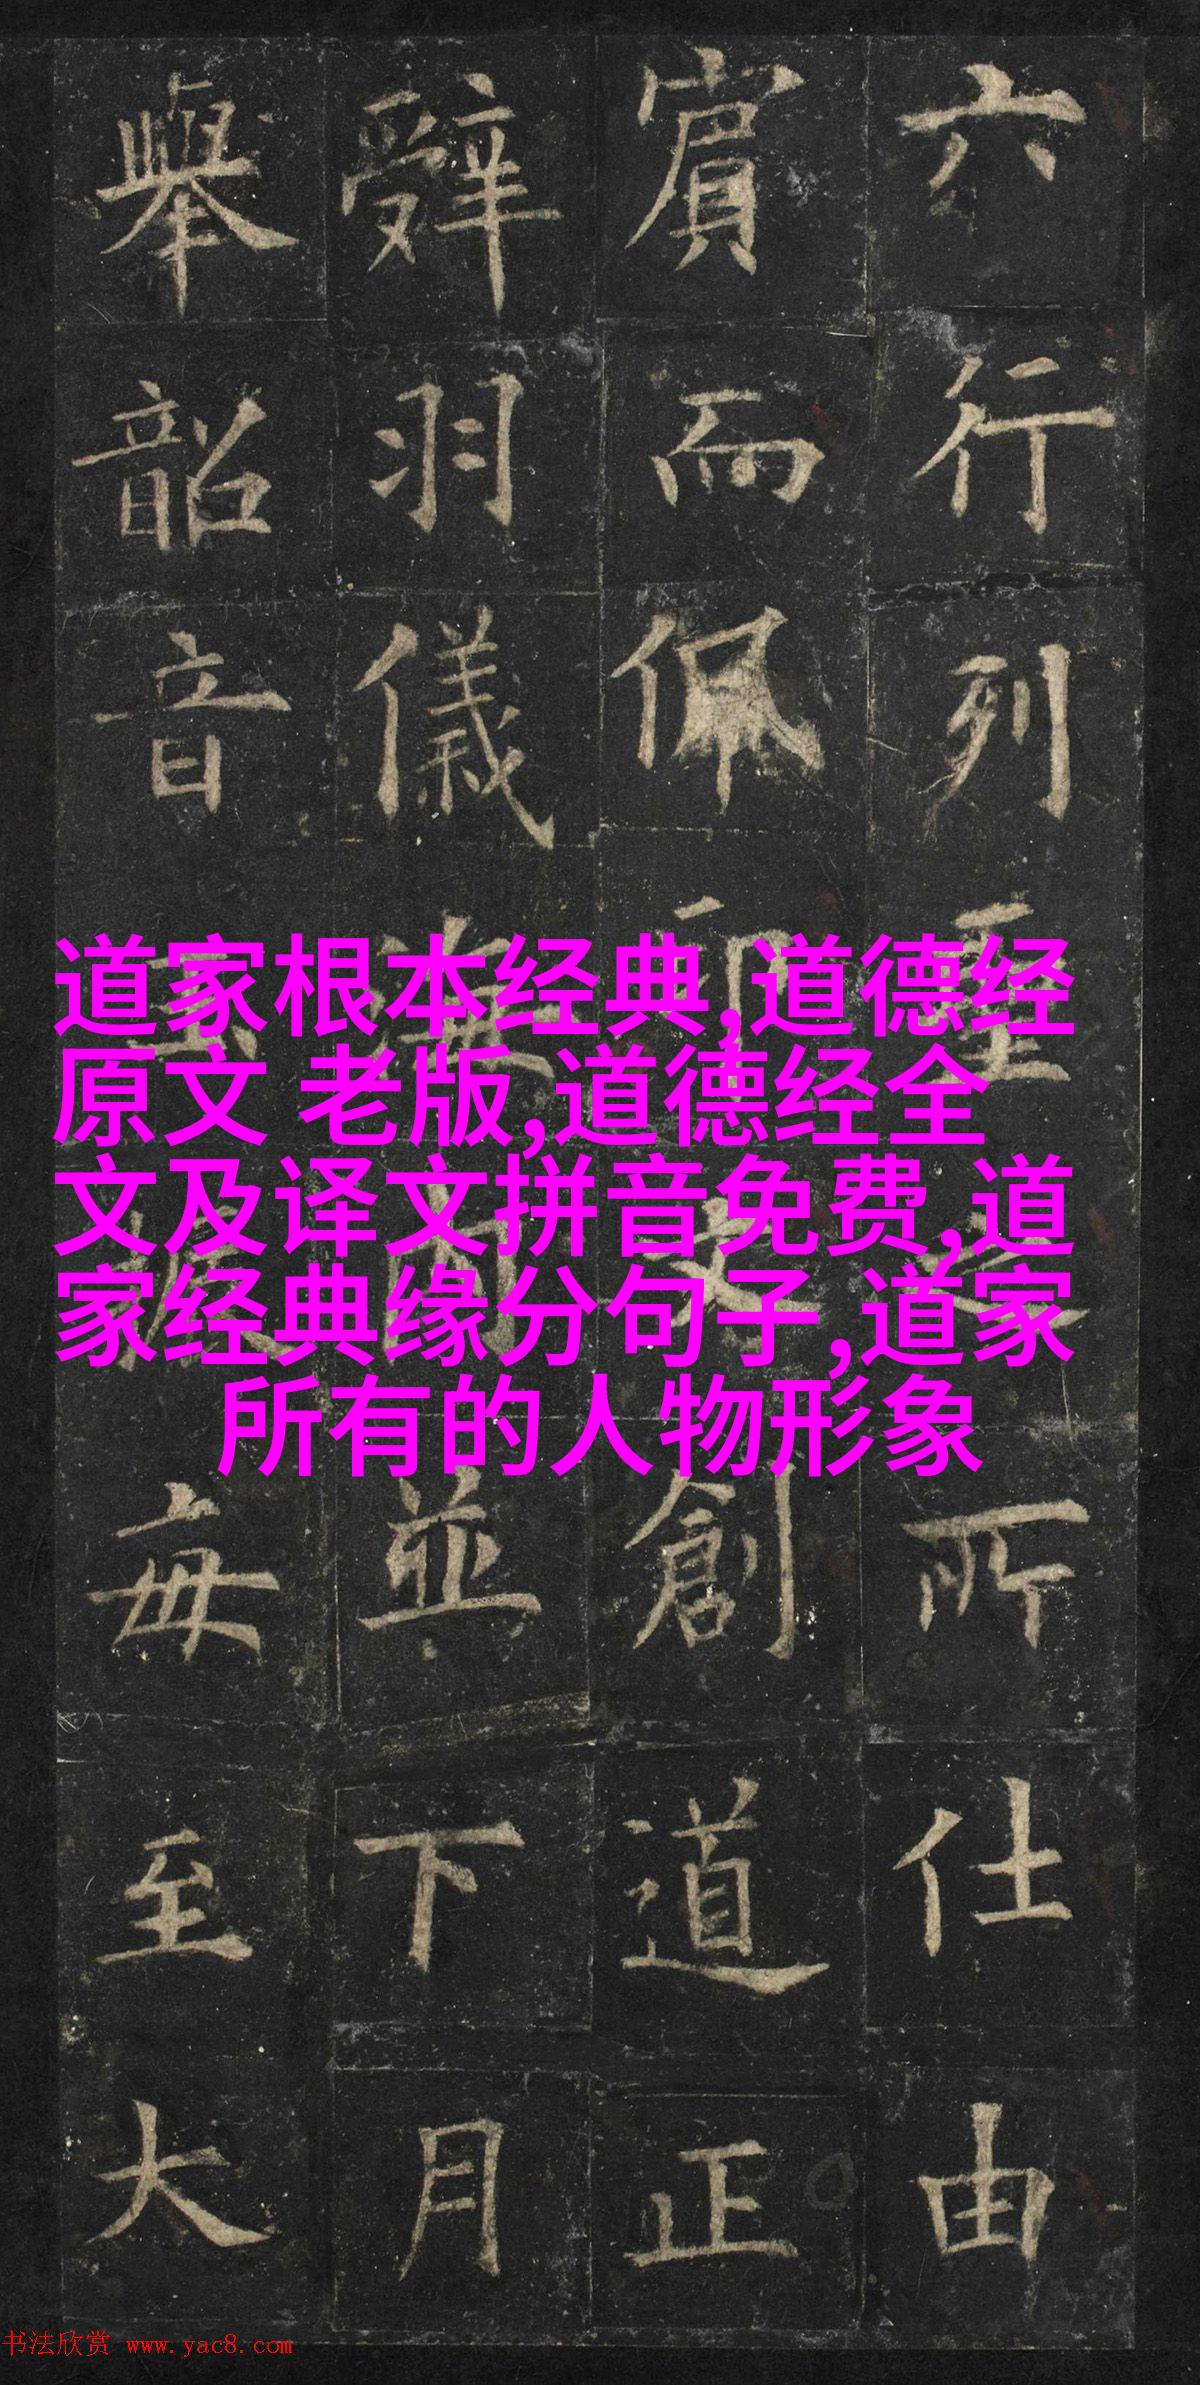 六行列聖之所仕由
賓而佩創道正
辭羽儀海内並下月
舉韶音玉振每至大
道家根本经典,道德经
原文 老版,道德经全
文及译文拼音免费,道
家经典缘分句子,道家
所有的人物形象
书法欣赏 www.yac8.com